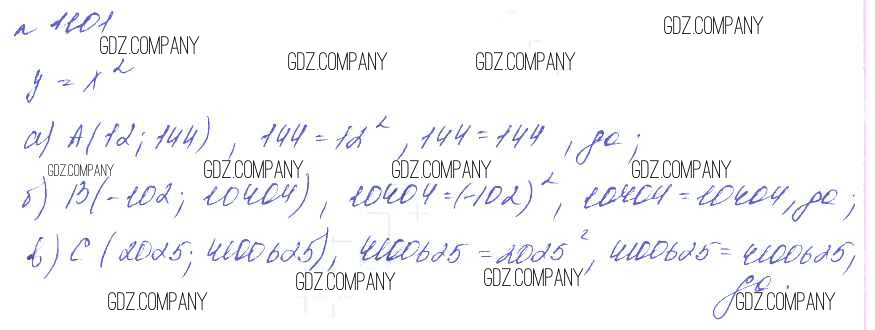 № 1101
GDZ.COMPANY GDZ.COMPANY GDZ.COMPANY GDZ.COMPANY
y = x²
а) A(12; 144), 144 = 12², 144 = 144, да;
GDZ.COMPANY GDZ.COMPANY GDZ.COMPANY GDZ.COMPANY
б) B(-102; 10404), 10404 = (-102)², 10404 = 10404, да;
в) C(2025; 4100625), 4100625 = 2025², 4100625 = 4100625,
да.
GDZ.COMPANY GDZ.COMPANY GDZ.COMPANY GDZ.COMPANY